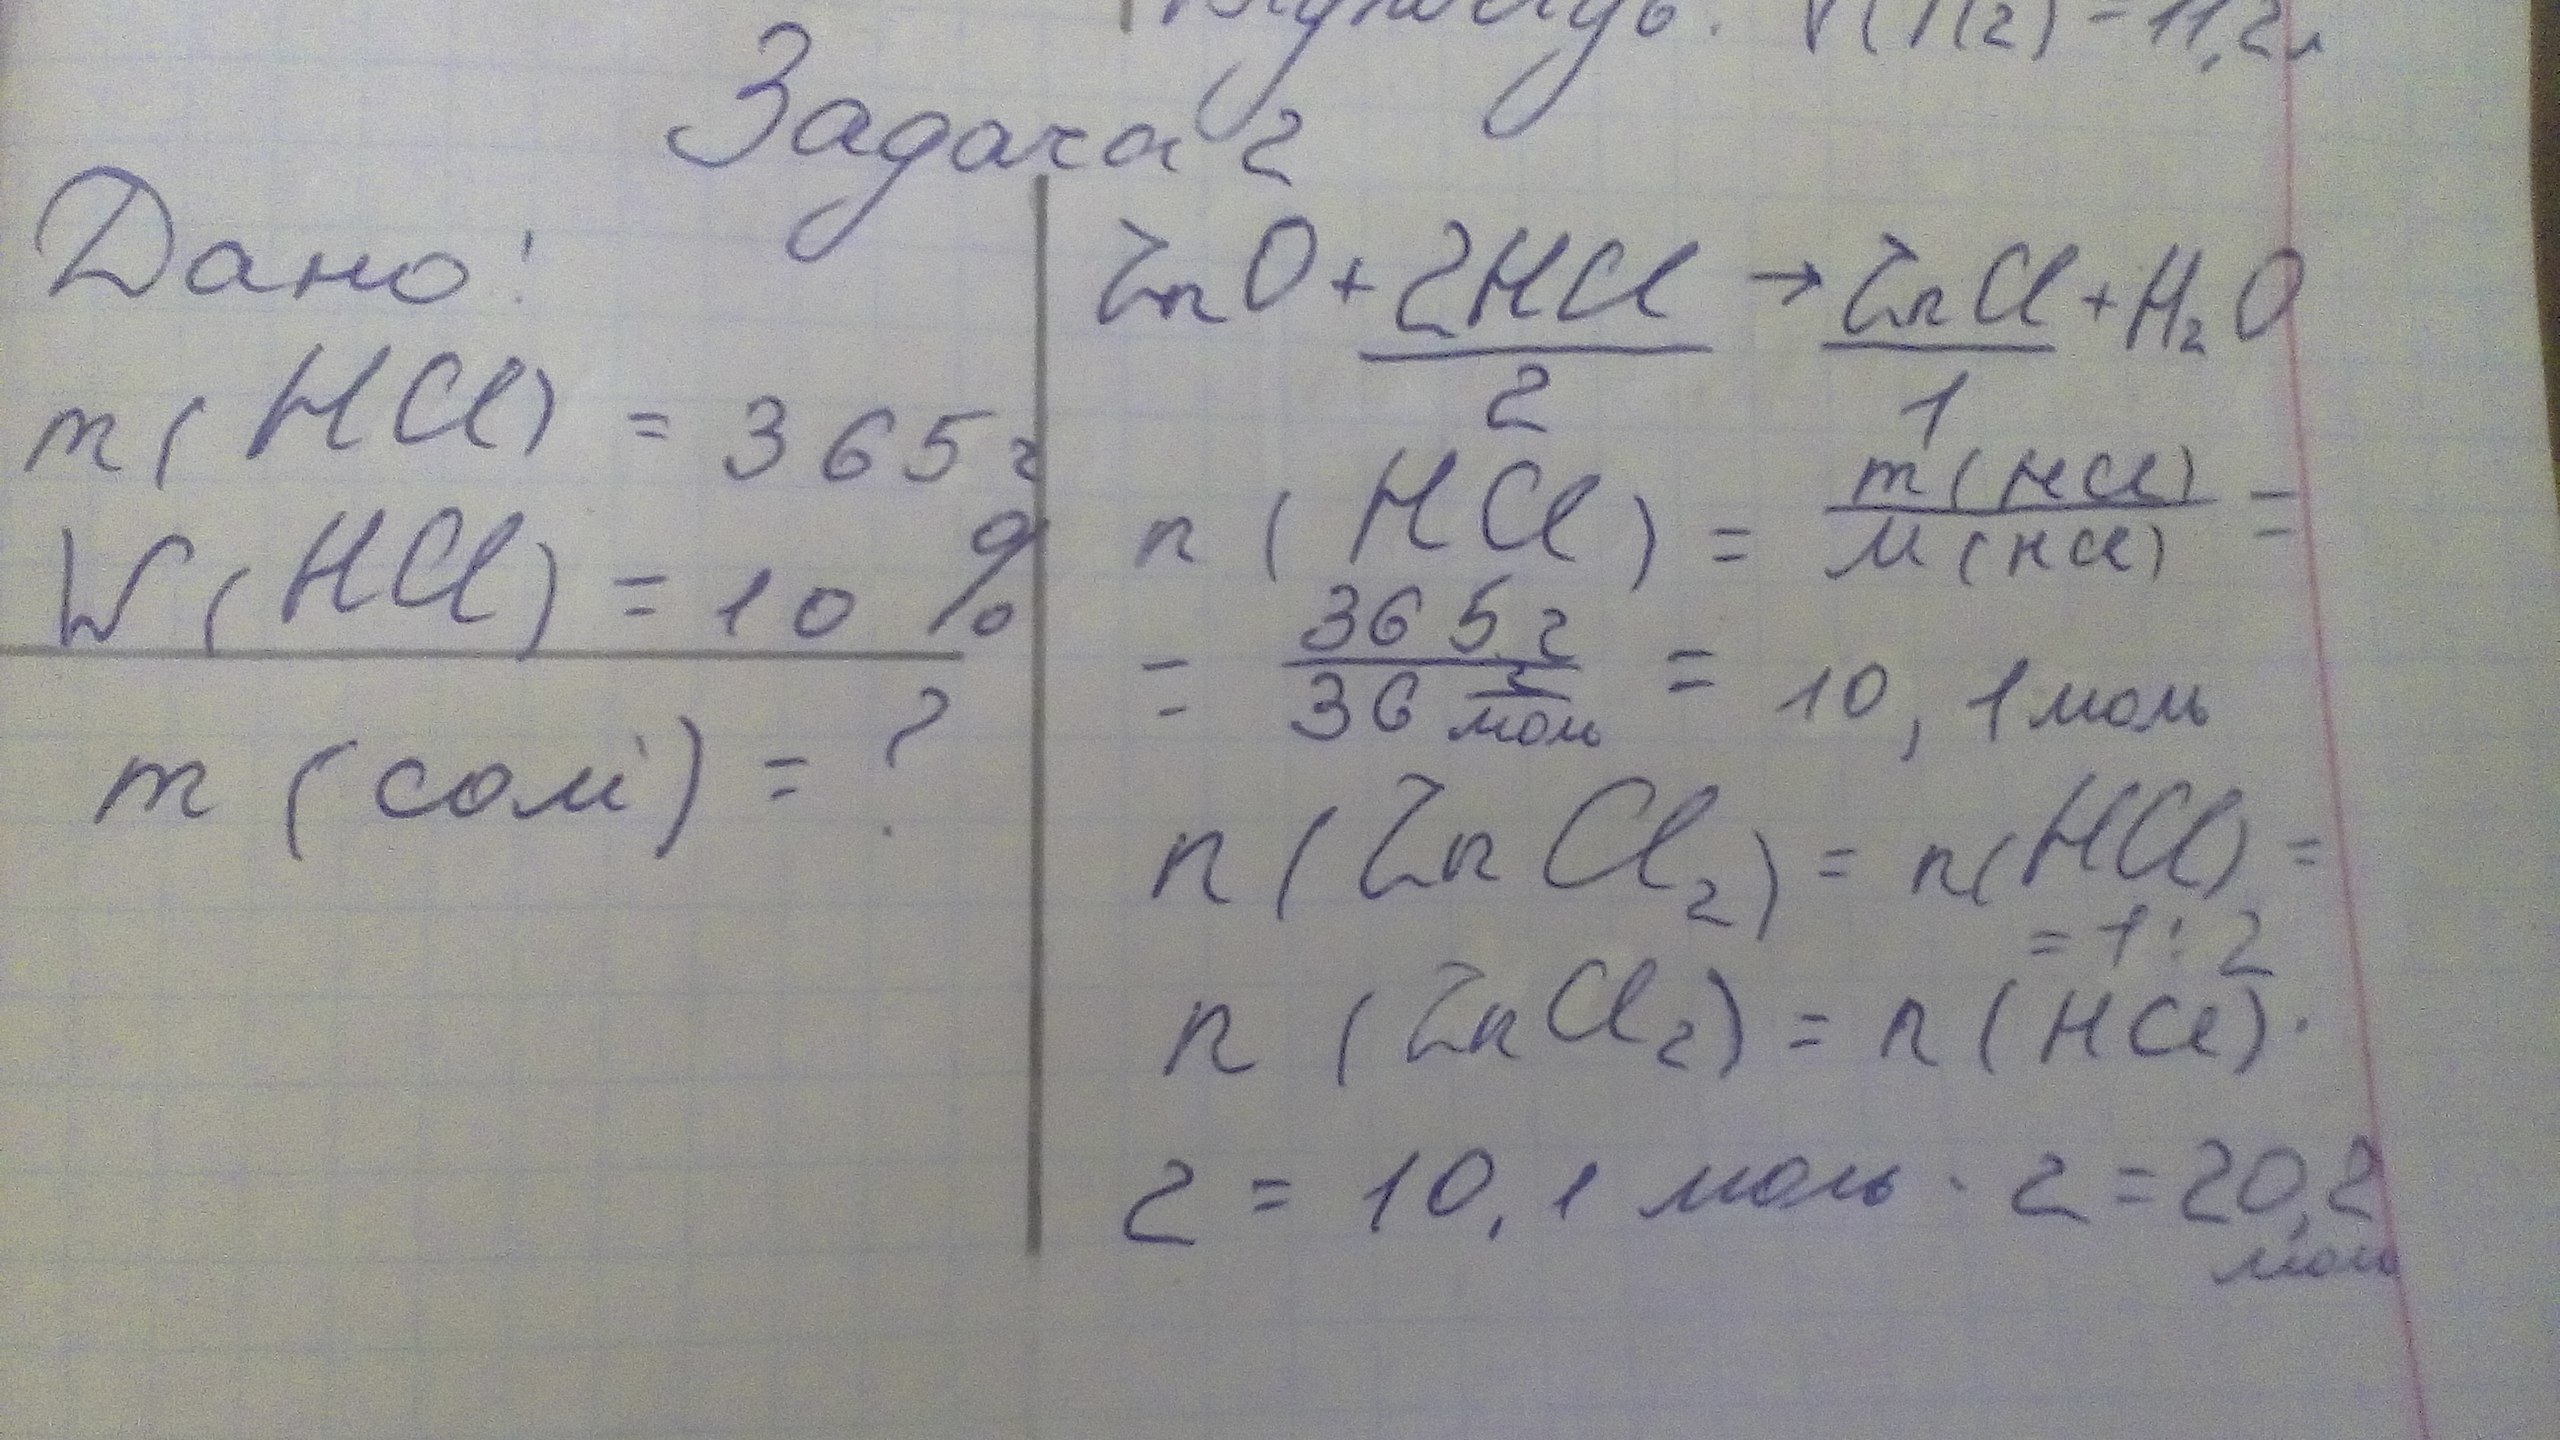 V(H2) = 11,2л
Задача 2
Дано:
m(HCl) = 365г
W(HCl) = 10%
m(солі) = ?
ZnO + 2HCl → ZnCl + H2O
2 1
n(HCl) = m(HCl) / M(HCl) =
= 365г / 36 г/моль = 10,1 моль
n(ZnCl2) = n(HCl) =
= 1:2
n(ZnCl2) = n(HCl)·
2 = 10,1 моль · 2 = 20,2
моль